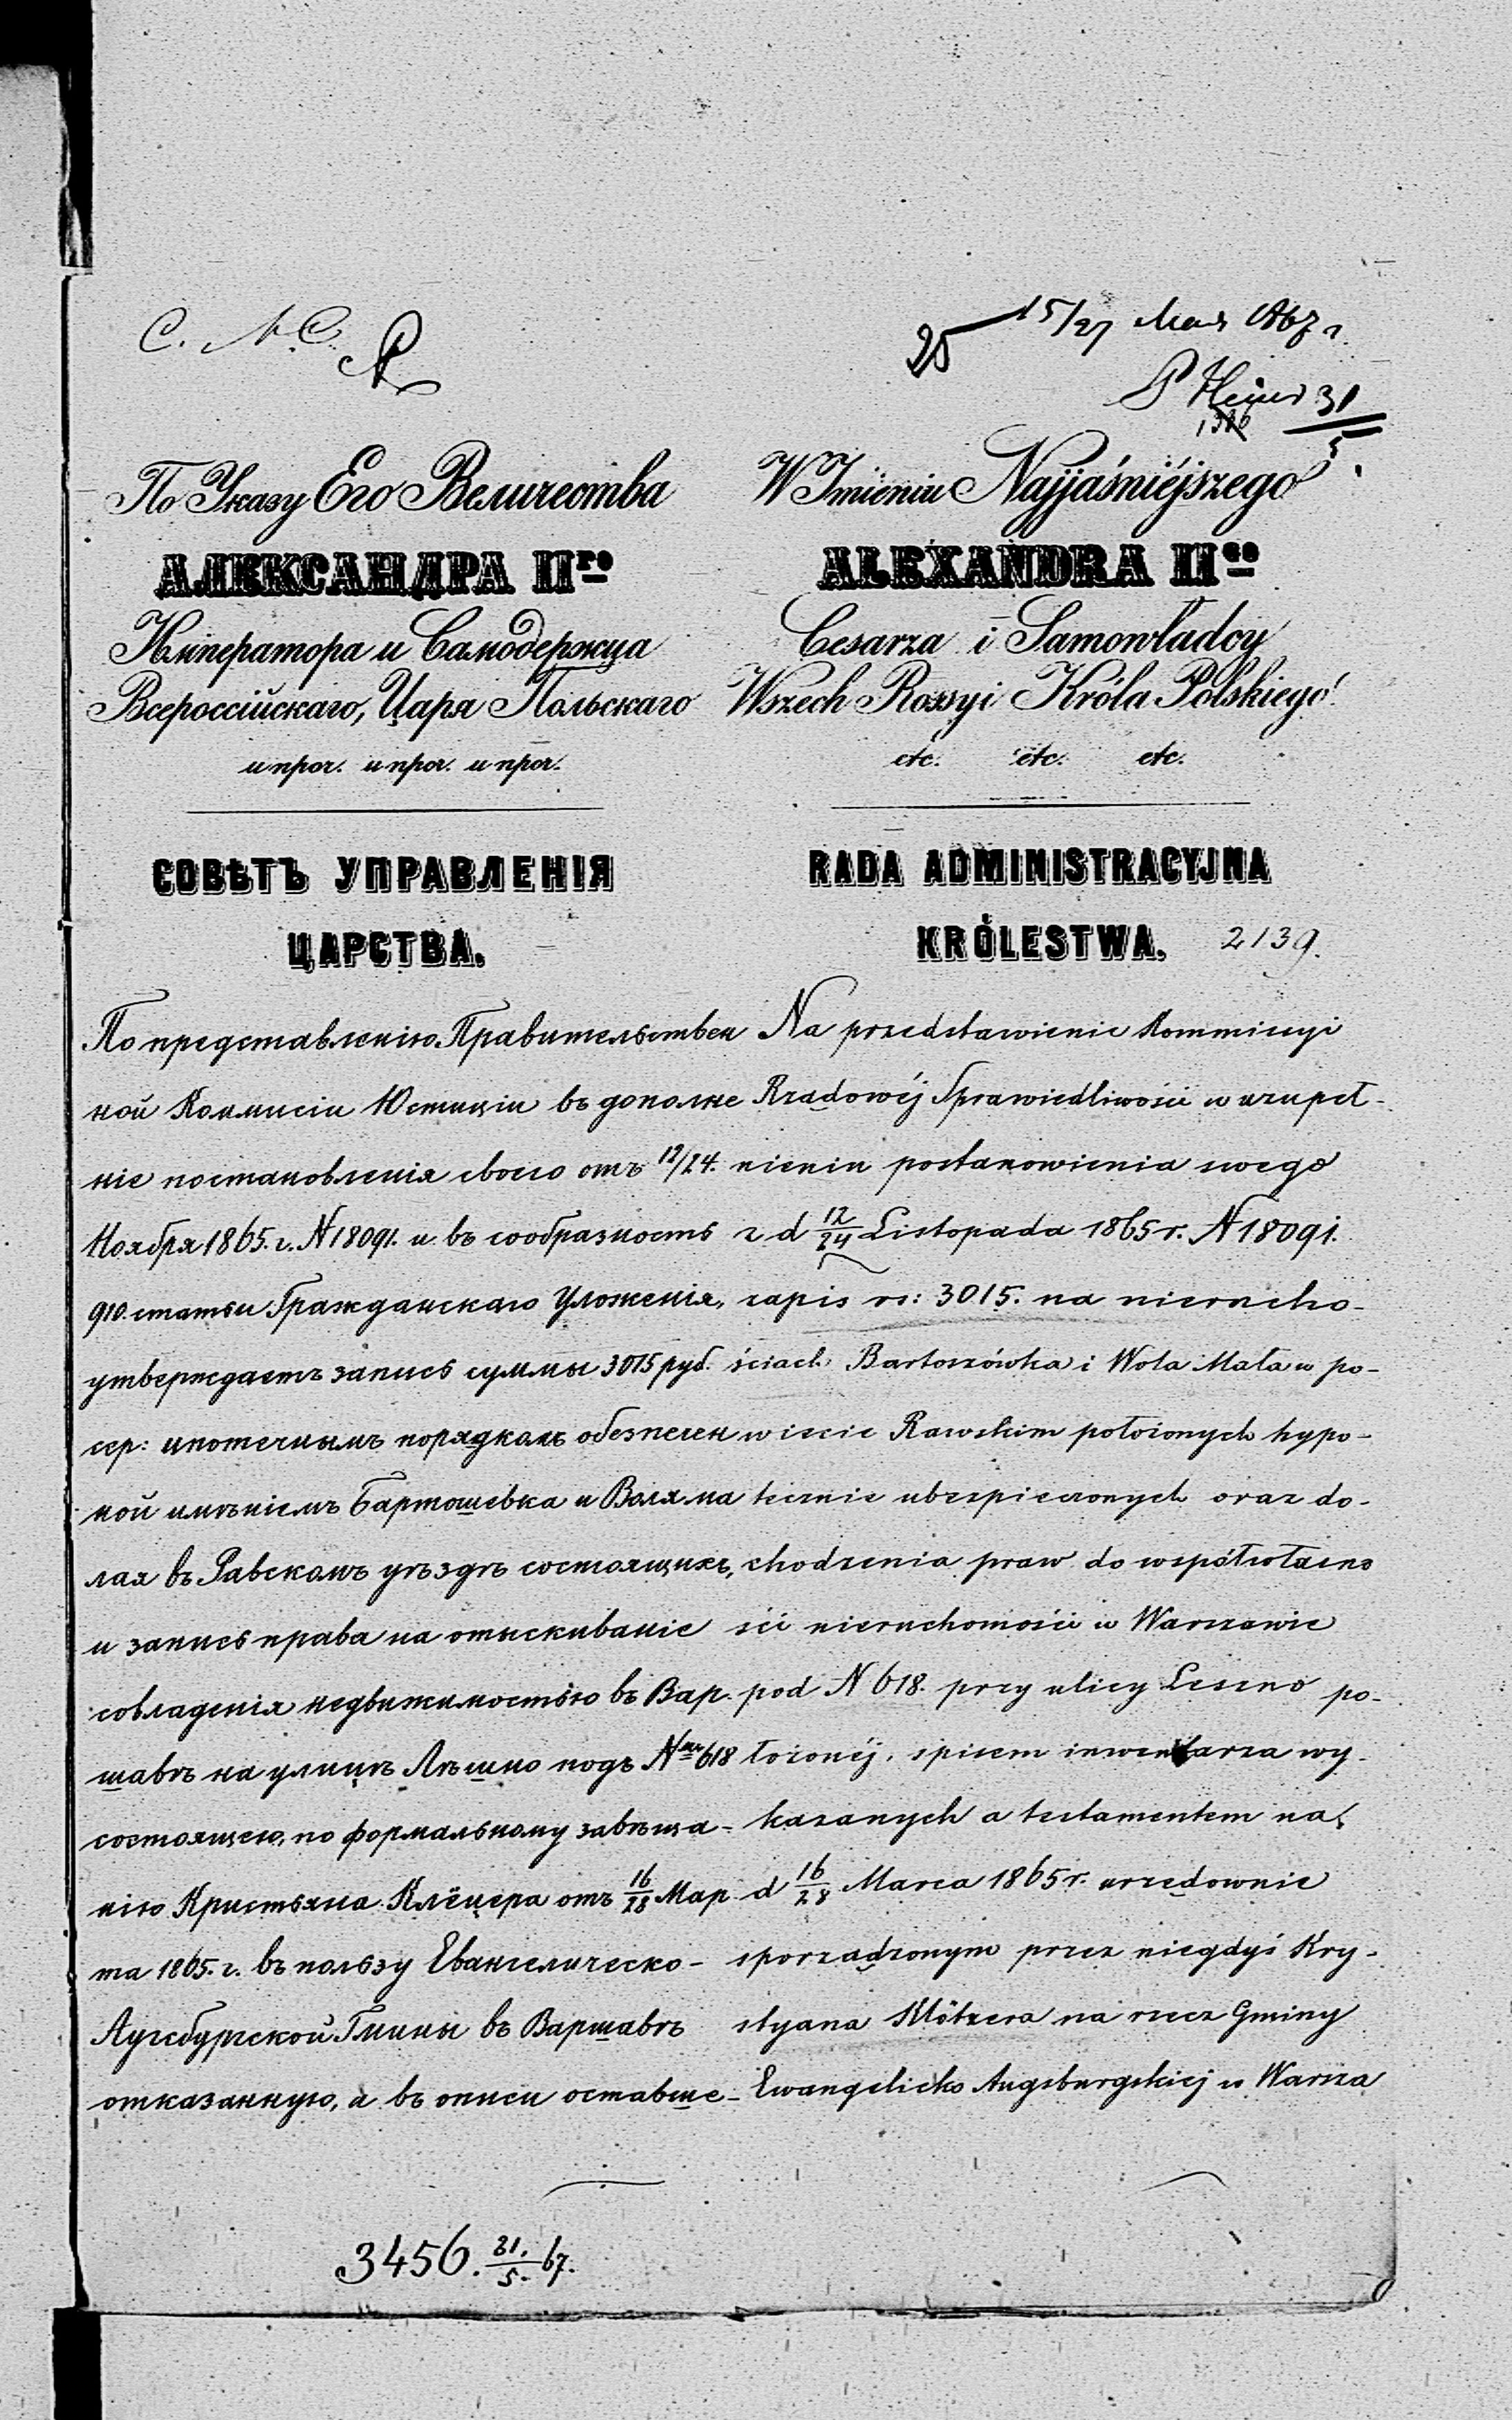 С. П. С.
25 15/27 Мая 1867 г.
31
5
1386
По Указу Его Величества
АЛЕКСАНДРА IIго
Императора и Самодержца
Всероссійскаго, Царя Польскаго
и проч. и проч. и проч.
СОВѢТЪ УПРАВЛЕНІЯ
ЦАРСТВА.
По представленію Правительствен
ной Коммисіи Юстиціи въ дополне
ніе постановленія своего отъ 12/24.
Ноября 1865. г. N 18091. и въ сообразность
910. статьи Гражданскаго Уложенія,
утверждаетъ запись суммы 3015 руб.
сер: ипотечнымъ порядкомъ обезпечен
ной имѣніемъ Бартошевка и Воля ма
лая въ Равскомъ уѣздѣ состоящихъ,
и запись права на отыскиваніе
совладенія недвижимостью въ Вар.
шавѣ на улицѣ Лѣшно подъ Nмъ 618
состоящею, по формальному завѣща-
нію Кристьяна Клёцера отъ 16/28 Мар
та 1865. г. въ пользу Евангелическо-
Аугсбургской Гмины въ Варшавѣ
отказанную, а въ описи оставше-
W Imieniu Najjaśniéjszego
ALEXANDRA IIgo
Cesarza i Samowładcy
Wszech Rossyi Króla Polskiego
etc. etc. etc.
RADA ADMINISTRACYJNA
KRÓLESTWA. 2139.
Na przedstawienie Kommissyi
Rządowéj Sprawiedliwości w uzupeł-
nieniu postanowienia swego
z d 12/24 Listopada 1865 r. N 18091.
zapis rs: 3015. na nierucho-
ściach Bartoszówka i Wola Mała w po-
wiecie Rawskim położonych hypo-
tecznie ubezpieczonych oraz do-
chodzenia praw do współwłasno
ści nieruchomości w Warszawie
pod N 618. przy ulicy Leszno po-
łożonéj, spisem inwentarza wy-
kazanych a testamentem na
d 16/28 Marca 1865 r. urzędownie
sporządzonym przez niegdyś Kry-
styana Klötzera na rzecz Gminy
Ewangelicko Augsburgskiej w Warsza
3456. 31./5. 67.